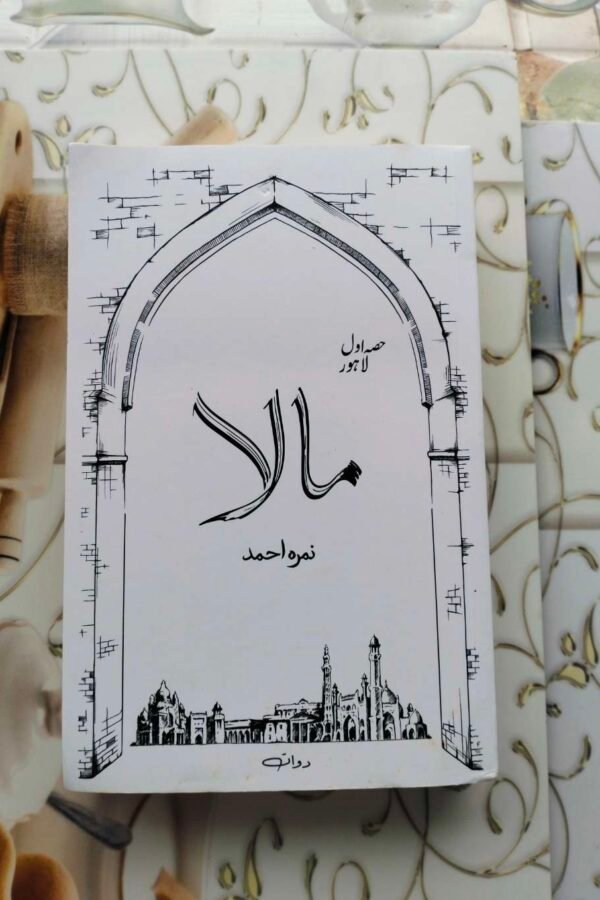 حصہ اول
لاہور
مالا
نمرہ احمد
دوات